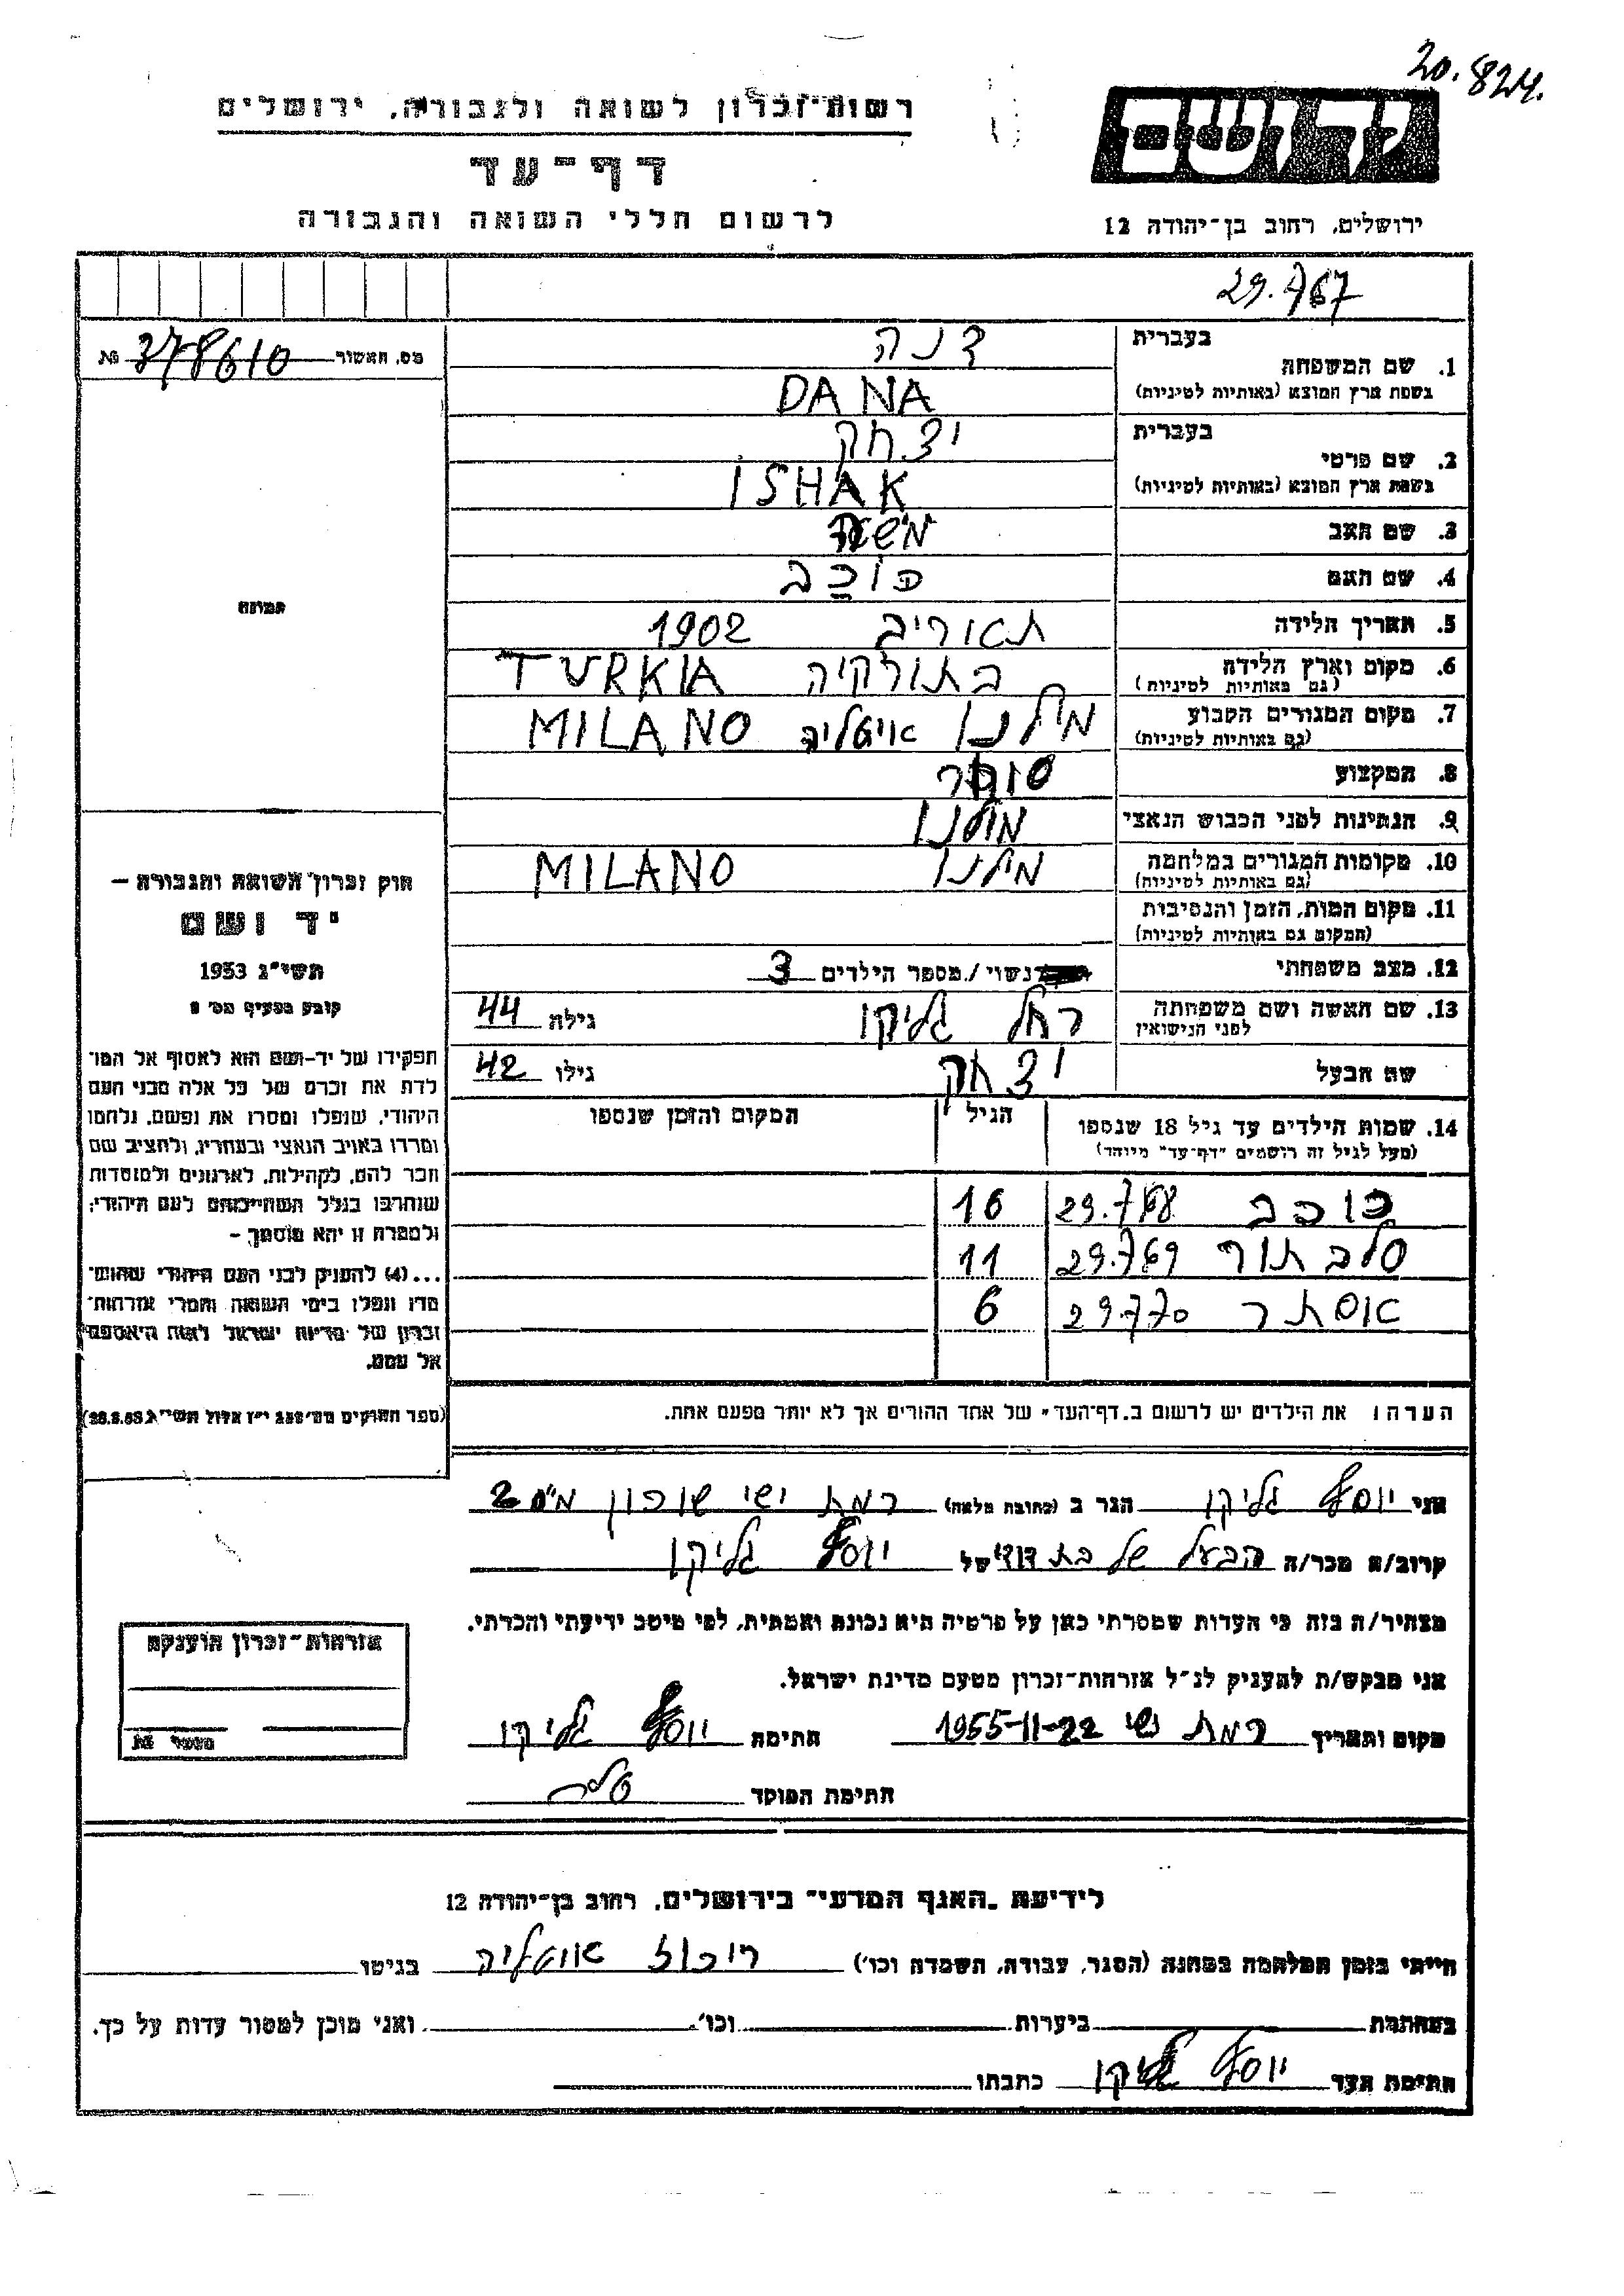 20.824.
רשות־זכרון לשואה ולגבורה, ירושלים
יד ושם
דף־עד
לרשום חללי השואה והגבורה
ירושלים, רחוב בן־יהודה 12
29.767
בעברית דנה
1. שם המשפחה
בשפת ארץ המוצא (באותיות לטיניות) DANA
בעברית יצחק
2. שם פרטי
בשפת ארץ המוצא (באותיות לטיניות) ISHAK
3. שם האב משה
4. שם האם כוכב
5. תאריך הלידה תאריב 1902
6. מקום וארץ הלידה בתורקיה TURKIA
(גם באותיות לטיניות)
7. מקום המגורים הקבוע מילנו איטליה MILANO
(גם באותיות לטיניות)
8. המקצוע סוחר
9. הנתינות לפני הכבוש הנאצי מילנו
10. מקומות המגורים במלחמה מילנו MILANO
(גם באותיות לטיניות)
11. מקום המות, הזמן והנסיבות
(המקום גם באותיות לטיניות)
12. מצב משפחתי נשוי /. מספר הילדים 3
13. שם האשה ושם משפחתה רחל גליקו גילה 44
לפני הנישואין
שם הבעל יצחק גילו 42
14. שמות הילדים עד גיל 18 שנספו הגיל המקום והזמן שנספו
(מעל לגיל זה רושמים "דף־עד" מיוחד)
כוכב 29.768 16
סלבתור 29.769 11
אסתר 29.770 6
הערה: את הילדים יש לרשום ב"דף־העד" של אחד ההורים אך לא יותר מפעם אחת.
מס. האשור 378610 №
תמונה
חוק זכרון השואה והגבורה –
יד ושם
תשי"ג 1953
קובע בסעיף מס' 2
תפקידו של יד־ושם הוא לאסוף אל המו־
לדת את זכרם של כל אלה מבני העם
היהודי, שנפלו ומסרו את נפשם, נלחמו
ומרדו באויב הנאצי ובעוזריו, ולהציב שם
וזכר להם, לקהילות, לארגונים ולמוסדות
שנחרבו בגלל השתייכותם לעם היהודי;
ולמטרה זו יהא מוסמך –
...(4) להעניק לבני העם היהודי שהוש־
מדו ונפלו בימי השואה והמרי אזרחות־
זכרון של מדינת ישראל לאות היאספם
אל עמם.
(ספר החוקים מס' 132 י"ז אלול תשי"ג 28.8.53)
אני יוסף גליקו הגר ב (כתובת מלאה) רמת ישי שוכון מ"ס 2
קרוב/ה מכר/ה הבעל של בת דודי של יוסף גליקו
מצהיר/ה בזה כי העדות שמסרתי כאן על פרטיה היא נכונה ואמתית, לפי מיטב ידיעתי והכרתי.
אני מבקש/ת להעניק לנ"ל אזרחות־זכרון מטעם מדינת ישראל.
מקום ותאריך רמת ישי 1955-11-22 חתימה יוסף גליקו
חתימת הפוקד
אזרחות־זכרון הוענקה
מספר №
לידיעת "האגף המדעי" בירושלים, רחוב בן־יהודה 12
הייתי בזמן המלחמה במחנה (הסגר, עבודה, השמדה וכו') ריכוז איטליה בגיטו
במחתרת ביערות וכו'. ואני מוכן למסור עדות על כך.
חתימת העד יוסף גליקו כתבתו